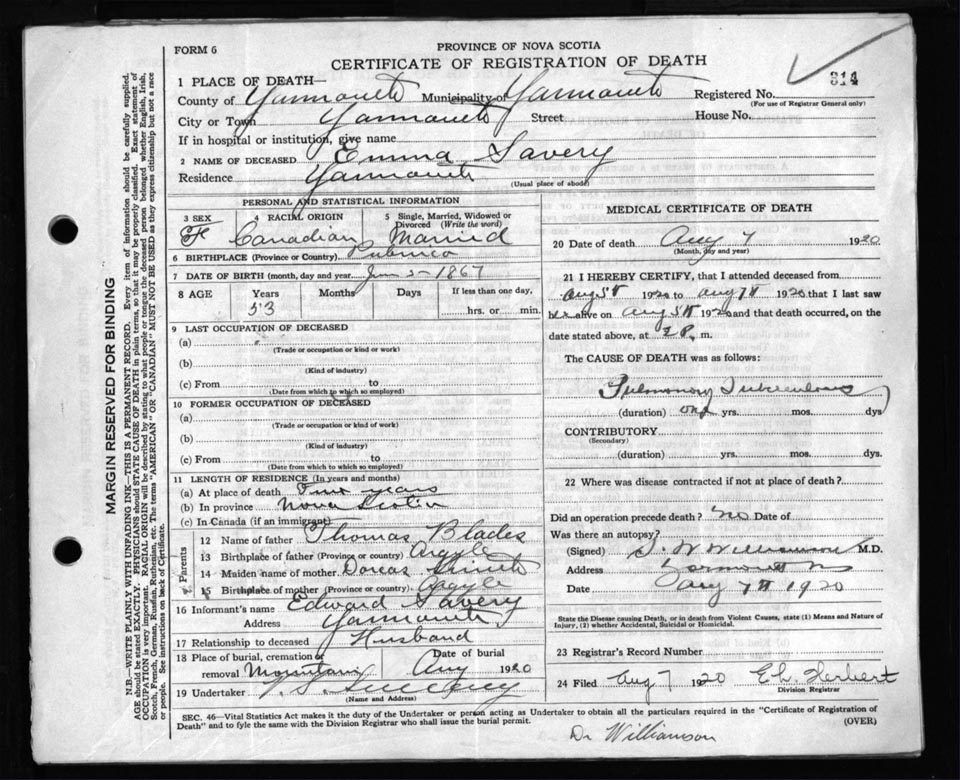 FORM 6
PROVINCE OF NOVA SCOTIA
CERTIFICATE OF REGISTRATION OF DEATH
314
1 PLACE OF DEATH—
County of Yarmouth Municipality of Yarmouth Registered No.
(For use of Registrar General only)
City or Town Yarmouth Street House No.
If in hospital or institution, give name
2 NAME OF DECEASED Emma Savery
Residence Yarmouth
(Usual place of abode)
PERSONAL AND STATISTICAL INFORMATION
3 SEX 4 RACIAL ORIGIN 5 Single, Married, Widowed or Divorced (Write the word)
F Canadian Married
6 BIRTHPLACE (Province or Country) Pubnico
7 DATE OF BIRTH (month, day and year) Jun 5 - 1867
8 AGE Years Months Days If less than one day,
53 hrs. or min.
9 LAST OCCUPATION OF DECEASED
(a)
(Trade or occupation or kind or work)
(b)
(Kind of industry)
(c) From to
(Date from which to which so employed)
10 FORMER OCCUPATION OF DECEASED
(a)
(Trade or occupation or kind of work)
(b)
(Kind of industry)
(c) From to
(Date from which to which so employed)
11 LENGTH OF RESIDENCE (In years and months)
(a) At place of death years
(b) In province Nova Scotia
(c) In Canada (if an immigrant)
Parents
12 Name of father Thomas Blades
13 Birthplace of father (Province or country) Argyle
14 Maiden name of mother Dorcas
15 Birthplace of mother (Province or country) Argyle
16 Informant's name Edward Savery
Address Yarmouth
17 Relationship to deceased Husband
18 Place of burial, cremation or removal Mountain Date of burial Aug 1920
19 Undertaker
(Name and Address)
MEDICAL CERTIFICATE OF DEATH
20 Date of death Aug 7 1920
(Month, day and year)
21 I HEREBY CERTIFY, that I attended deceased from
Aug 5th 1920 to Aug 7th 1920 that I last saw
her alive on Aug 5th 1920 and that death occurred, on the
date stated above, at 2 P. m.
The CAUSE OF DEATH was as follows:
Pulmonary Tuberculosis
(duration) one yrs. mos. dys
CONTRIBUTORY
(Secondary)
(duration) yrs. mos. dys.
22 Where was disease contracted if not at place of death?
Did an operation precede death? no Date of
Was there an autopsy?
(Signed) S. W Williamson M.D.
Address Yarmouth
Date Aug 7th 1920
State the Disease causing Death, or in death from Violent Causes, state (1) Means and Nature of
Injury, (2) whether Accidental, Suicidal or Homicidal.
23 Registrar's Record Number
24 Filed Aug 7 1920 E. h. Herbert
Division Registrar
SEC. 46—Vital Statistics Act makes it the duty of the Undertaker or person acting as Undertaker to obtain all the particulars required in the "Certificate of Registration of
Death" and to fyle the same with the Division Registrar who shall issue the burial permit.
(OVER)
Dr Williamson
MARGIN RESERVED FOR BINDING
N.B.—WRITE PLAINLY WITH UNFADING INK—THIS IS A PERMANENT RECORD. Every item of information should be carefully supplied.
AGE should be stated EXACTLY. PHYSICIANS should STATE CAUSE OF DEATH in plain terms, so that it may be properly classified. Exact statement of
OCCUPATION is very important. RACIAL ORIGIN will be described by stating to what people or tongue the deceased person belonged whether English, Irish,
Scotch, French, German, Russian, Ruthenian, etc. The terms "AMERICAN" OR "CANADIAN" MUST NOT BE USED as they express citizenship but not a race
or people. See instructions on back of Certificate.